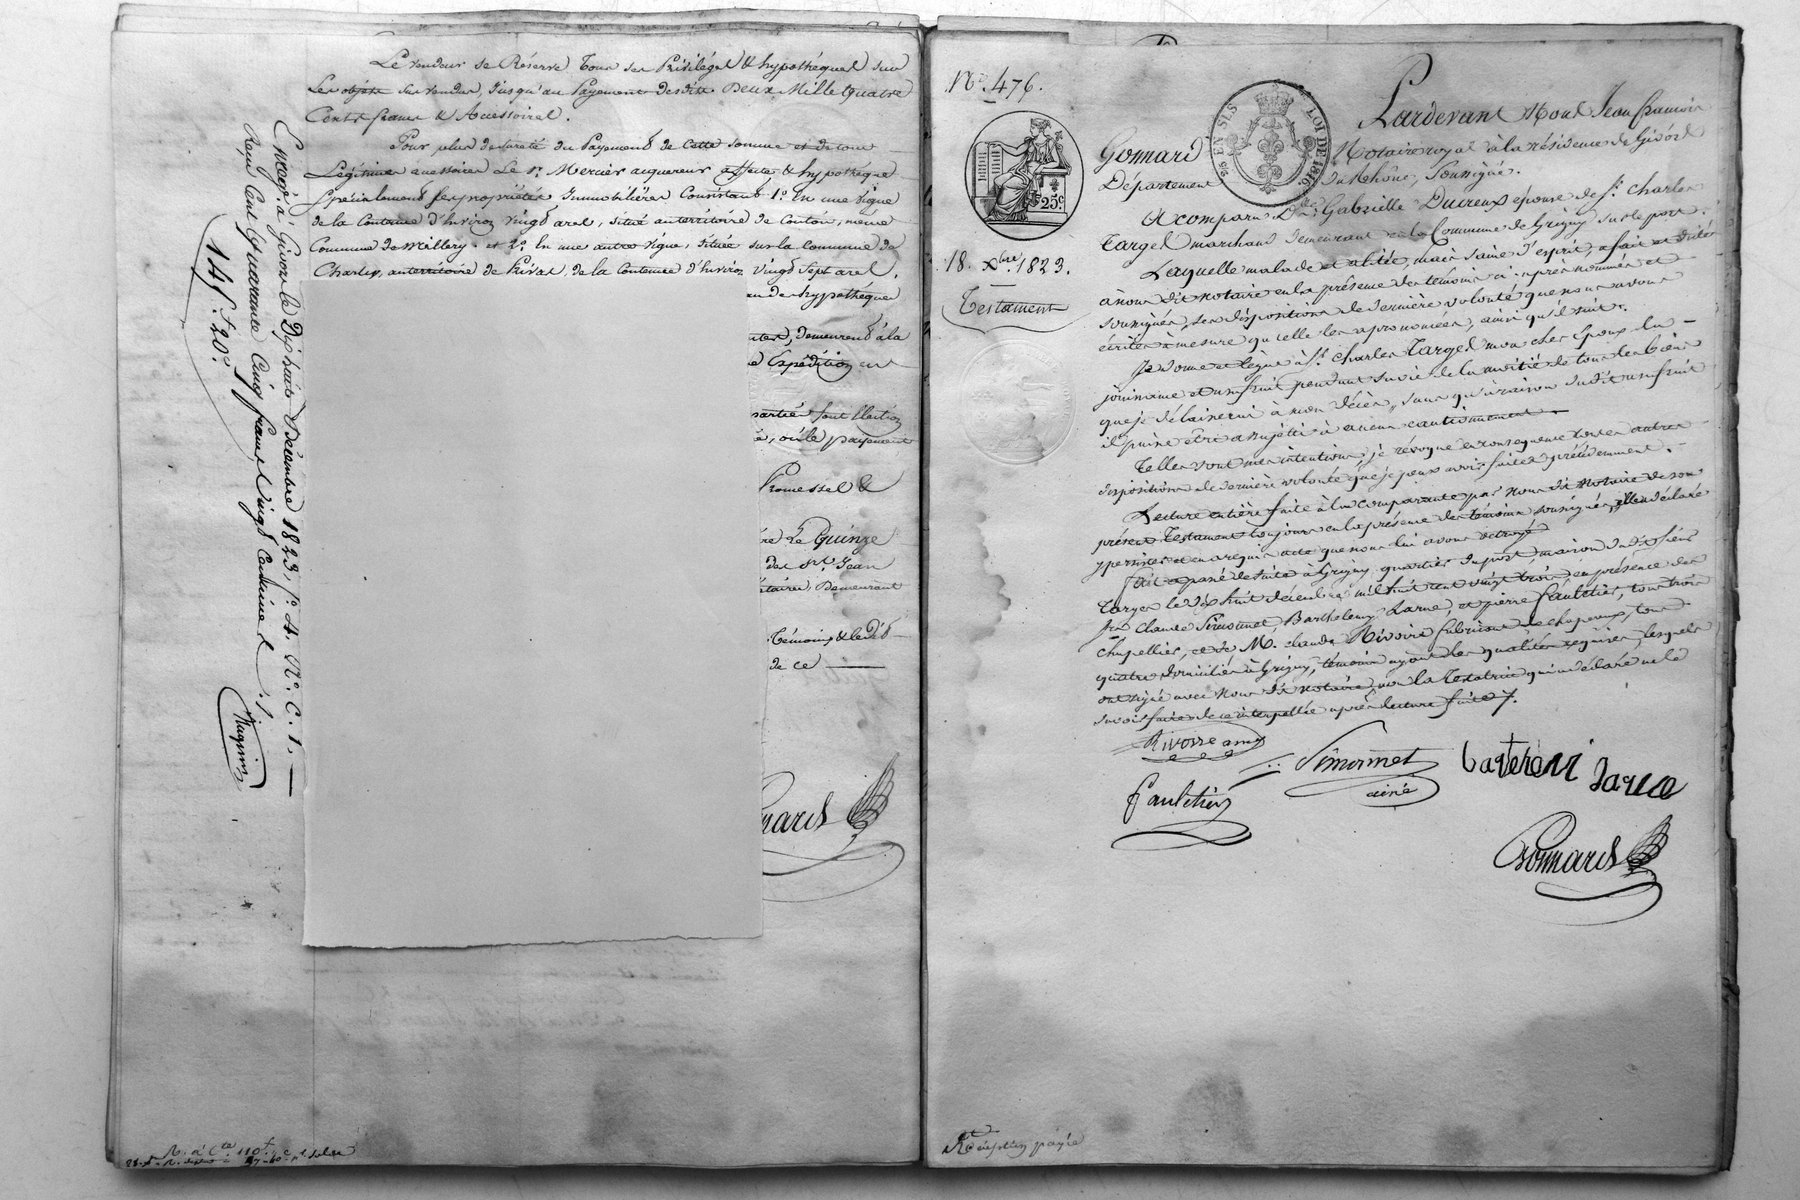 Le vendeur se Réserve Tous ses Priviléges & hypothéques sur
Les objets sus vendus, Jusqu'au Payement desdits Deux Mille Quatre
Cents francs & Accessoires.
Pour plus de sureté du Payement de Cette somme et de tous
Légitimes accessoires Le sr. Mercier acquereur affecte & hypothéque
Spécialement ses propriétés Immobilières Consistant 1o. En une vigne
de la Contenue d'Environ vingt ares, situé au territoire de Coutou, même
Commune de Millery. et 2o. En une autre vigne, située sur la commune de
Charly, au territoire de Privas, de la Contenue d'Environ Vingt Sept ares.
au des hypothéques
demeurant à la
Expédition en
parties font Election
, où le payement
Promesses &
Le Quinze
des srs. Jean
Demeurant
Témoins & le dit
de ce
nard
Enreg. à Givors le Dix huit Décembre 1823, fo. 4. Ro. C. 1.
Reçu Cent Quarante Cinq francs Vingt Centimes
145f. 20c.
No. 476.
25c
18. Xbre. 1823.
Testament
25 EN SUS LOI DE 1816.
Pardevant Nous Jean francois
Gonnard Notaire royal à la résidence de Givors
Département du Rhône, Soussigné.
A comparu De. Gabrielle Ducreux épouse de sr. Charles
Targe marchand demeurant en la Commune de Grigny sur le port.
Laquelle malade et alitée, mais saine d'esprit, a fait et dicté
à nous dit notaire en la présence des témoins ci-après nommés et
soussignés, ses dispositions de dernière volonté que nous avons
écrites à mesure qu'elle les a prononcées, ainsi qu'il suit.
Je donne et lègue à sr. Charles Targe mon cher Epoux la
jouissance et usufruit pendant sa vie de la moitié de tous les biens
que je délaisserai à mon décès, sans qu'à raison dudit usufruit
il puisse être assujetti à aucun cautionnement.
Telles sont mes intentions, je révoque en conséquence toutes autres
dispositions de dernière volonté que je peux avoir faites précédemment.
Lecture entière faite à la comparante par nous dit notaire de son
présent Testament toujours en la présence des témoins soussignés, elle a déclaré
y persister et en a requis acte que nous lui avons octroyé
fait et passé de suite à Grigny, quartier du port, maison dudit sieur
Targe le dix huit décembre mil huit cent vingt trois, en présence des
srs. Claude Simonnet, Barthelemy Larue, et pierre faultier, tous trois
chapelliers, et de M. claude Rivoire fabricant de chapeaux, tous
quatre domiciliés à Grigny, témoins ayant les qualités requises, lesquels
ont signé avec nous dit notaire, non la Testatrice qui a déclaré ne le
savoir faire de ce interpellée après lecture faite.
Rivoire
Simonnet
ainé
Larue
faultier
Gonnard